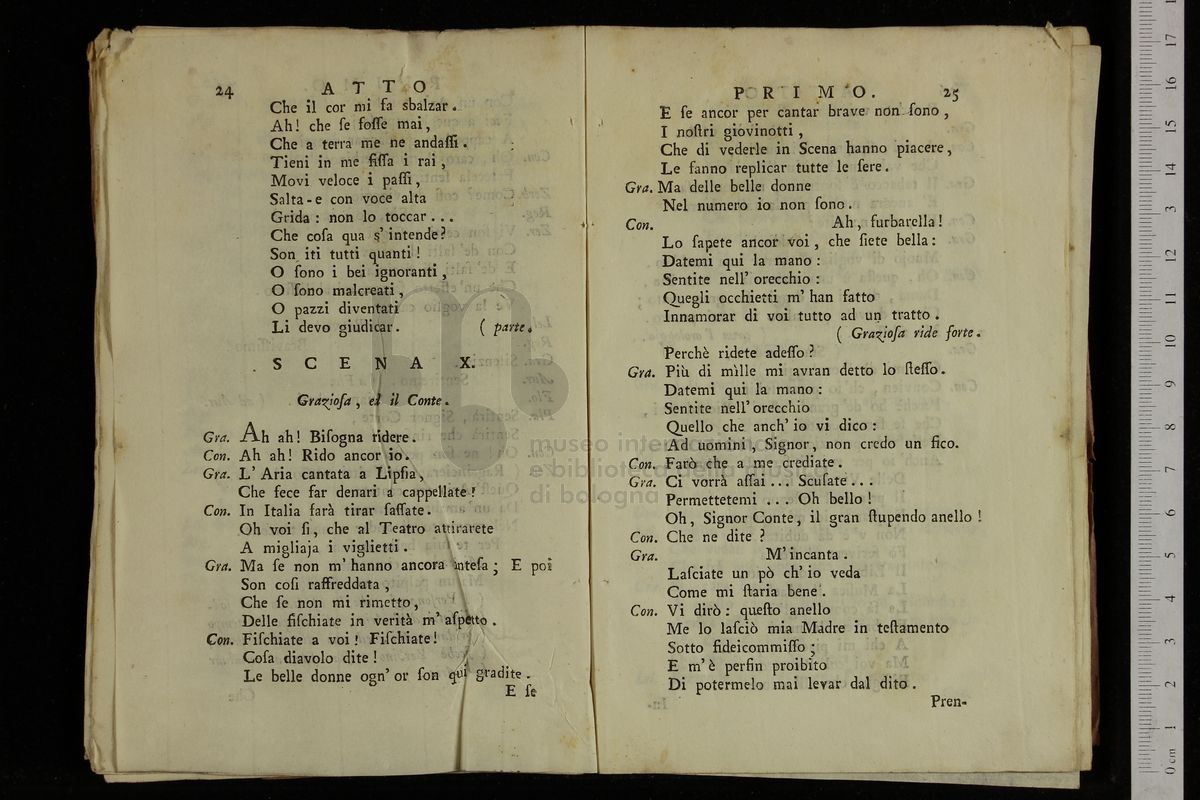 24 ATTO
Che il cor mi fa sbalzar.
Ah! che ſe foſſe mai,
Che a terra me ne andaſſi.
Tieni in me fiſſa i rai,
Movi veloce i paſſi,
Salta-e con voce alta
Grida: non lo toccar...
Che coſa qua s'intende?
Son iti tutti quanti!
O ſono i bei ignoranti,
O ſono malcreati,
O pazzi diventati
Li devo giudicar. ( parte.
SCENA X.
Grazioſa, ed il Conte.
Gra. Ah ah! Biſogna ridere.
Con. Ah ah! Rido ancor io.
Gra. L'Aria cantata a Lipſia,
Che fece far denari a cappellate!
Con. In Italia farà tirar ſaſſate.
Oh voi ſi, che al Teatro attirarete
A migliaja i viglietti.
Gra. Ma ſe non m'hanno ancora inteſa; E poi
Son coſi raffreddata,
Che ſe non mi rimetto,
Delle fiſchiate in verità m'aſpetto.
Con. Fiſchiate a voi! Fiſchiate!
Coſa diavolo dite!
Le belle donne ogn'or ſon qui gradite.
E ſe
PRIMO. 25
E ſe ancor per cantar brave non ſono,
I noſtri giovinotti,
Che di vederle in Scena hanno piacere,
Le fanno replicar tutte le ſere.
Gra. Ma delle belle donne
Nel numero io non ſono.
Con. Ah, furbarella!
Lo ſapete ancor voi, che ſiete bella:
Datemi qui la mano:
Sentite nell'orecchio:
Quegli occhietti m'han fatto
Innamorar di voi tutto ad un tratto.
( Grazioſa ride forte.
Perchè ridete adeſſo?
Gra. Più di mìlle mi avran detto lo ſteſſo.
Datemi qui la mano:
Sentite nell'orecchio
Quello che anch'io vi dico:
Ad uomini, Signor, non credo un fico.
Con. Farò che a me crediate.
Gra. Ci vorrà aſſai... Scuſate...
Permettetemi... Oh bello!
Oh, Signor Conte, il gran ſtupendo anello!
Con. Che ne dite?
Gra. M'incanta.
Laſciate un pò ch'io veda
Come mi ſtaria bene.
Con. Vi dirò: queſto anello
Me lo laſciò mia Madre in teſtamento
Sotto fideicommiſſo;
E m'è perfin proibito
Di potermelo mai levar dal dito.
Pren-
museo internazionale
e biblioteca della musica
di bologna
0 cm 1 2 3 4 5 6 7 8 9 10 11 12 13 14 15 16 17